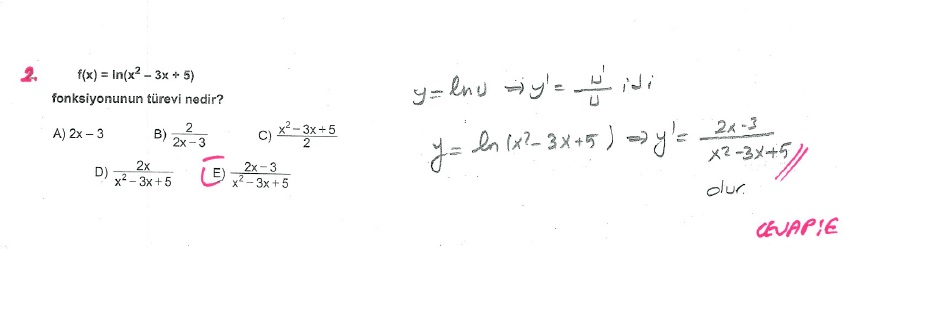 2.
f(x) = ln(x² – 3x + 5)
fonksiyonunun türevi nedir?
A) 2x – 3 B) 2/(2x – 3) C) (x² – 3x + 5)/2
D) 2x/(x² – 3x + 5) E) (2x – 3)/(x² – 3x + 5)
y = ln u ⇒ y' = u'/u idi
y = ln (x² – 3x + 5) ⇒ y' = (2x - 3)/(x² – 3x + 5) //
olur.
CEVAP: E